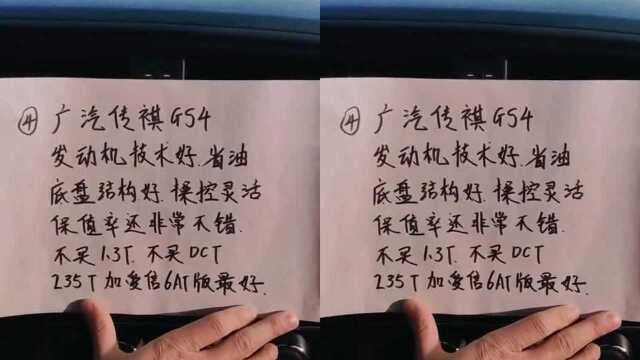 ④ 广汽传祺GS4
发动机技术好.省油
底盘结构好.操控灵活
保值率还非常不错.
不买1.3T.不买DCT
235T加爱信6AT版最好.
④ 广汽传祺GS4
发动机技术好.省油
底盘结构好.操控灵活
保值率还非常不错.
不买1.3T.不买DCT
235T加爱信6AT版最好.